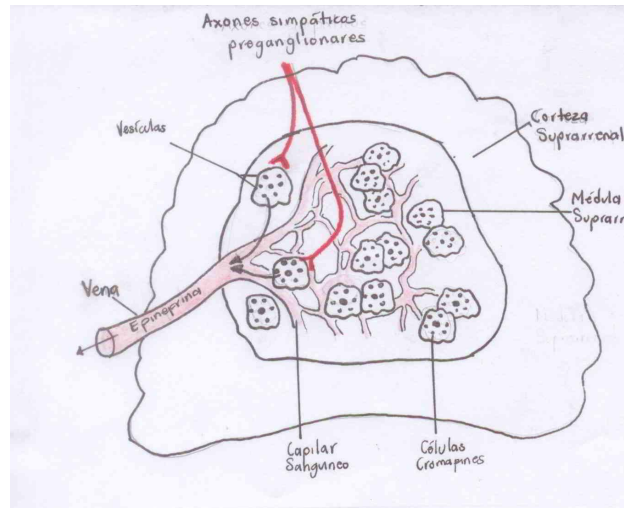 Axones simpáticos
preganglionares
Vesículas
Corteza
Suprarrenal
Médula
Suprarr
Vena
Epinefrina
Capilar
Sanguíneo
Células
Cromapines